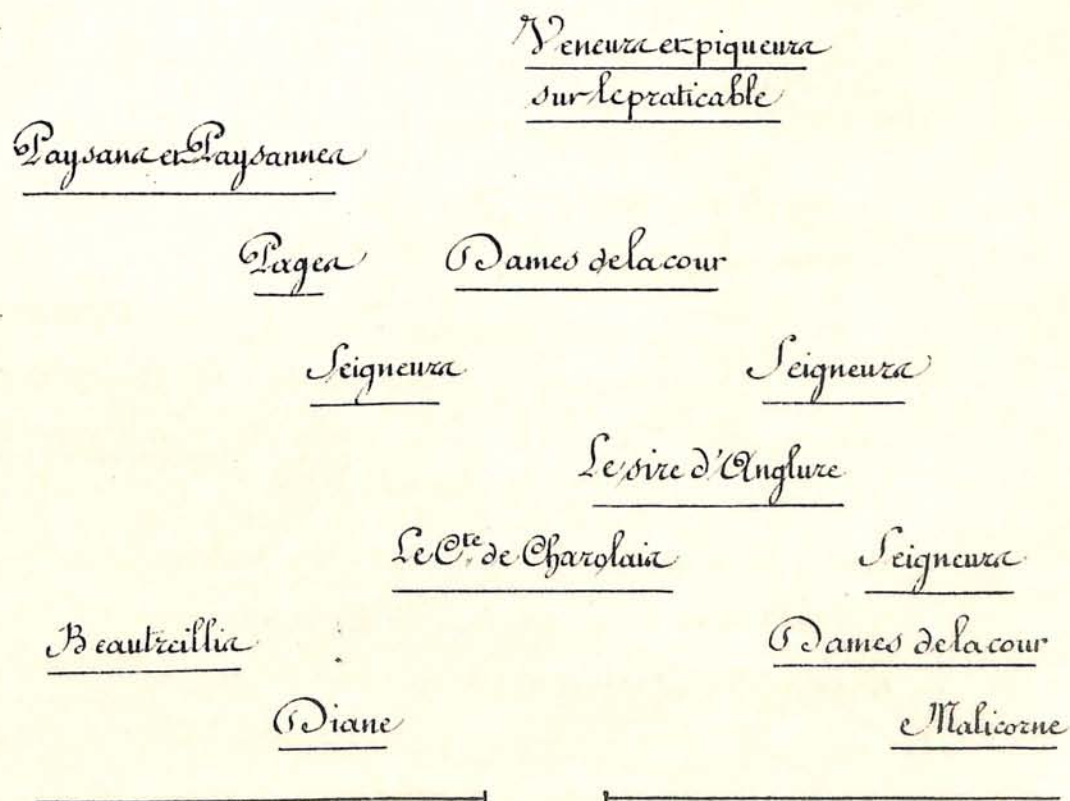 Veneurs et piqueurs
sur le praticable
Paysans et Paysannes
Pages
Dames de la cour
Seigneurs
Seigneurs
Le sire d'Anglure
Le Cte de Charolais
Seigneurs
Beautreillis
Dames de la cour
Diane
Malicorne